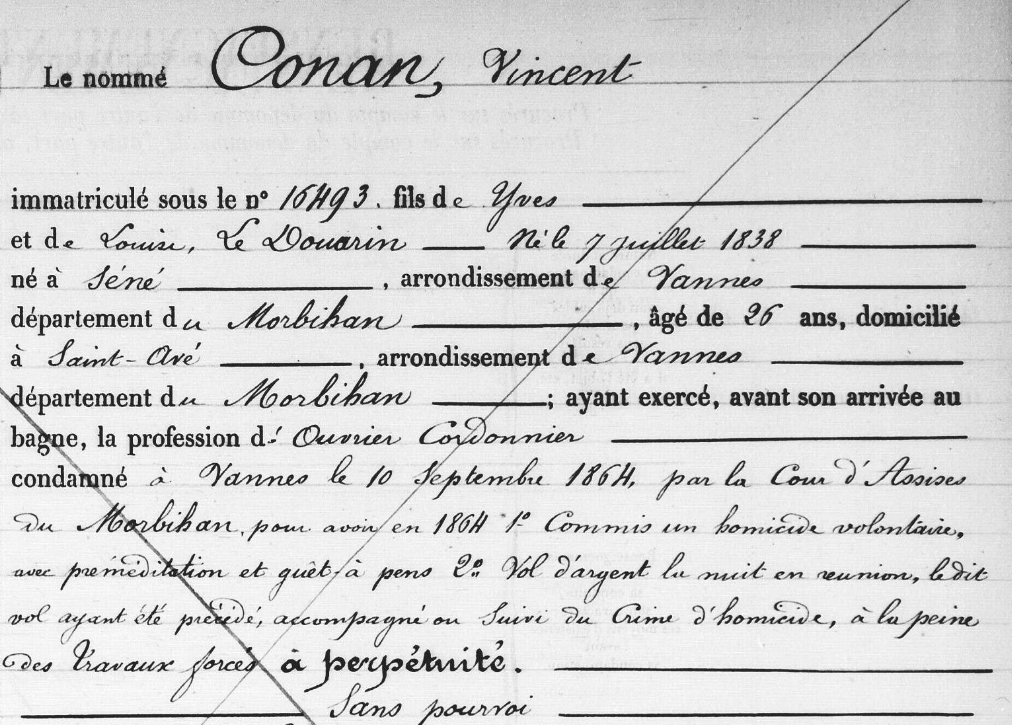 Le nommé Conan, Vincent
immatriculé sous le nº 16493. fils de Yves
et de Louise, Le Douarin Né le 7 juillet 1838
né à Séné, arrondissement de Vannes
département du Morbihan, âgé de 26 ans, domicilié
à Saint-Avé, arrondissement de Vannes
département du Morbihan; ayant exercé, avant son arrivée au
bagne, la profession d' Ouvrier Cordonnier
condamné à Vannes le 10 Septembre 1864, par la Cour d'Assises
du Morbihan, pour avoir en 1864 1º Commis un homicide volontaire,
avec préméditation et guêt-à pens 2º Vol d'argent la nuit en reunion, ledit
vol ayant été précédé, accompagné ou Suivi du Crime d'homicide, à la peine
des Travaux forcés à perpétuité.
Sans pourvoi